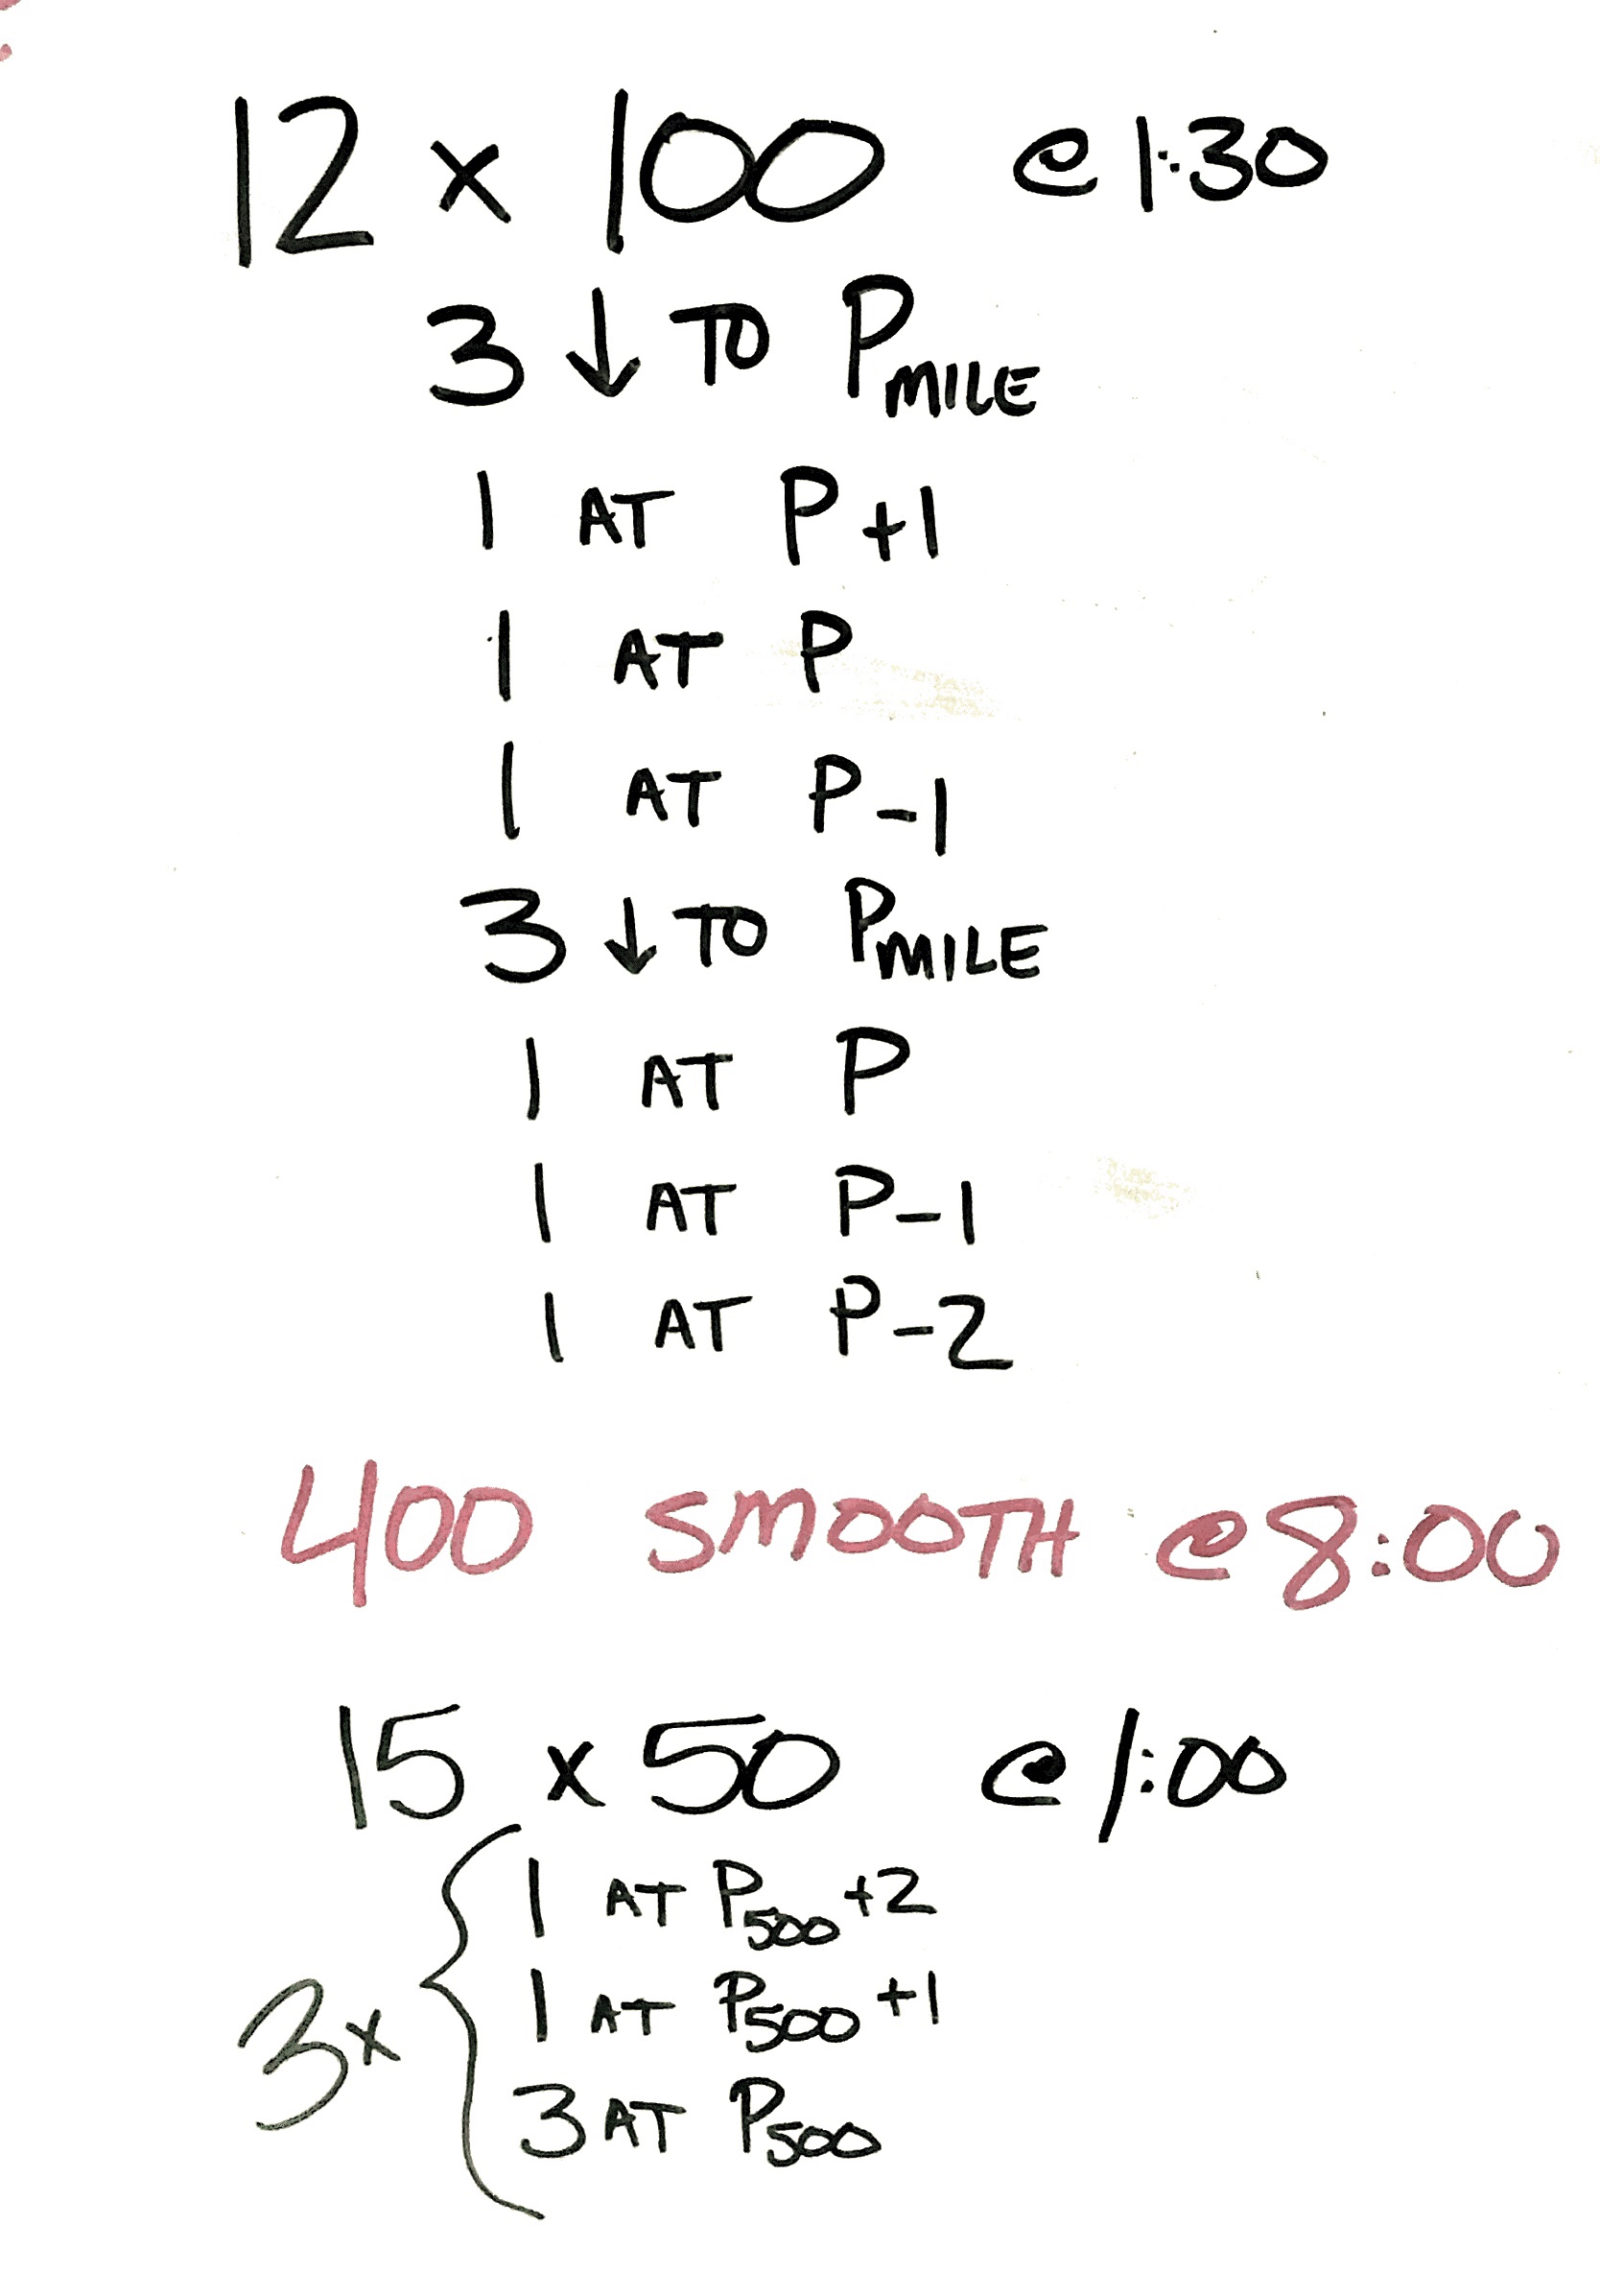 12 x 100 @ 1:30
3 ↓ TO PMILE
1 AT P+1
1 AT P
1 AT P-1
3 ↓ TO PMILE
1 AT P
1 AT P-1
1 AT P-2
400 SMOOTH @ 8:00
15 x 50 @ 1:00
1 AT P500 +2
1 AT P500 +1
3x
3 AT P500